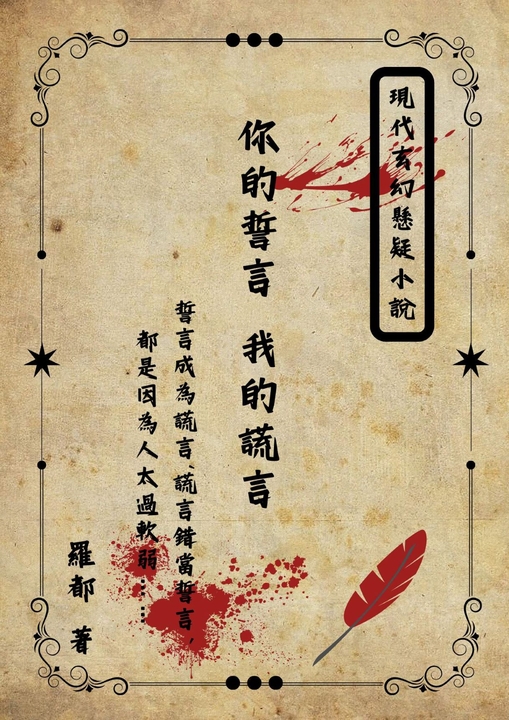 現代玄幻懸疑小說
你的誓言 我的謊言
誓言成為謊言、謊言錯當誓言，
都是因為人太過軟弱……
羅都 著